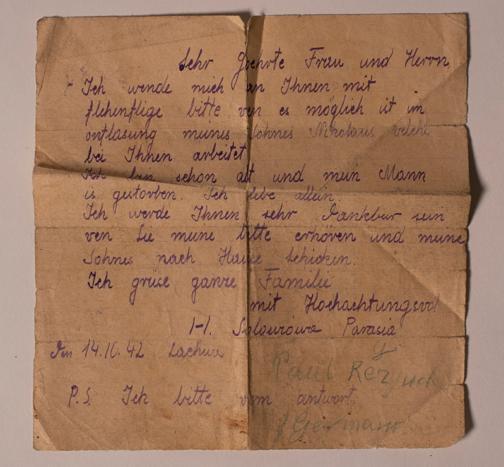 Sehr Geehrte Frau und Herrn
Ich wende mich an Ihnen mit
flehenflige bitte ven es möglich ist im
entlasung munes Sohnes Nikolaus welche
bei Ihnen arbeitet
Ich bin schon alt und mein Mann
is gestorben. Ich lebe allein
Ich werde Ihnen sehr Dankbar sein
ven Sie mune bitte erhören und mune
Sohnes nach Hause schicken.
Ich grüse ganze Familie
mit Hochachtungsvol
Parasia
Den 14.10.42
Paul
P.S. Ich bitte um antwort